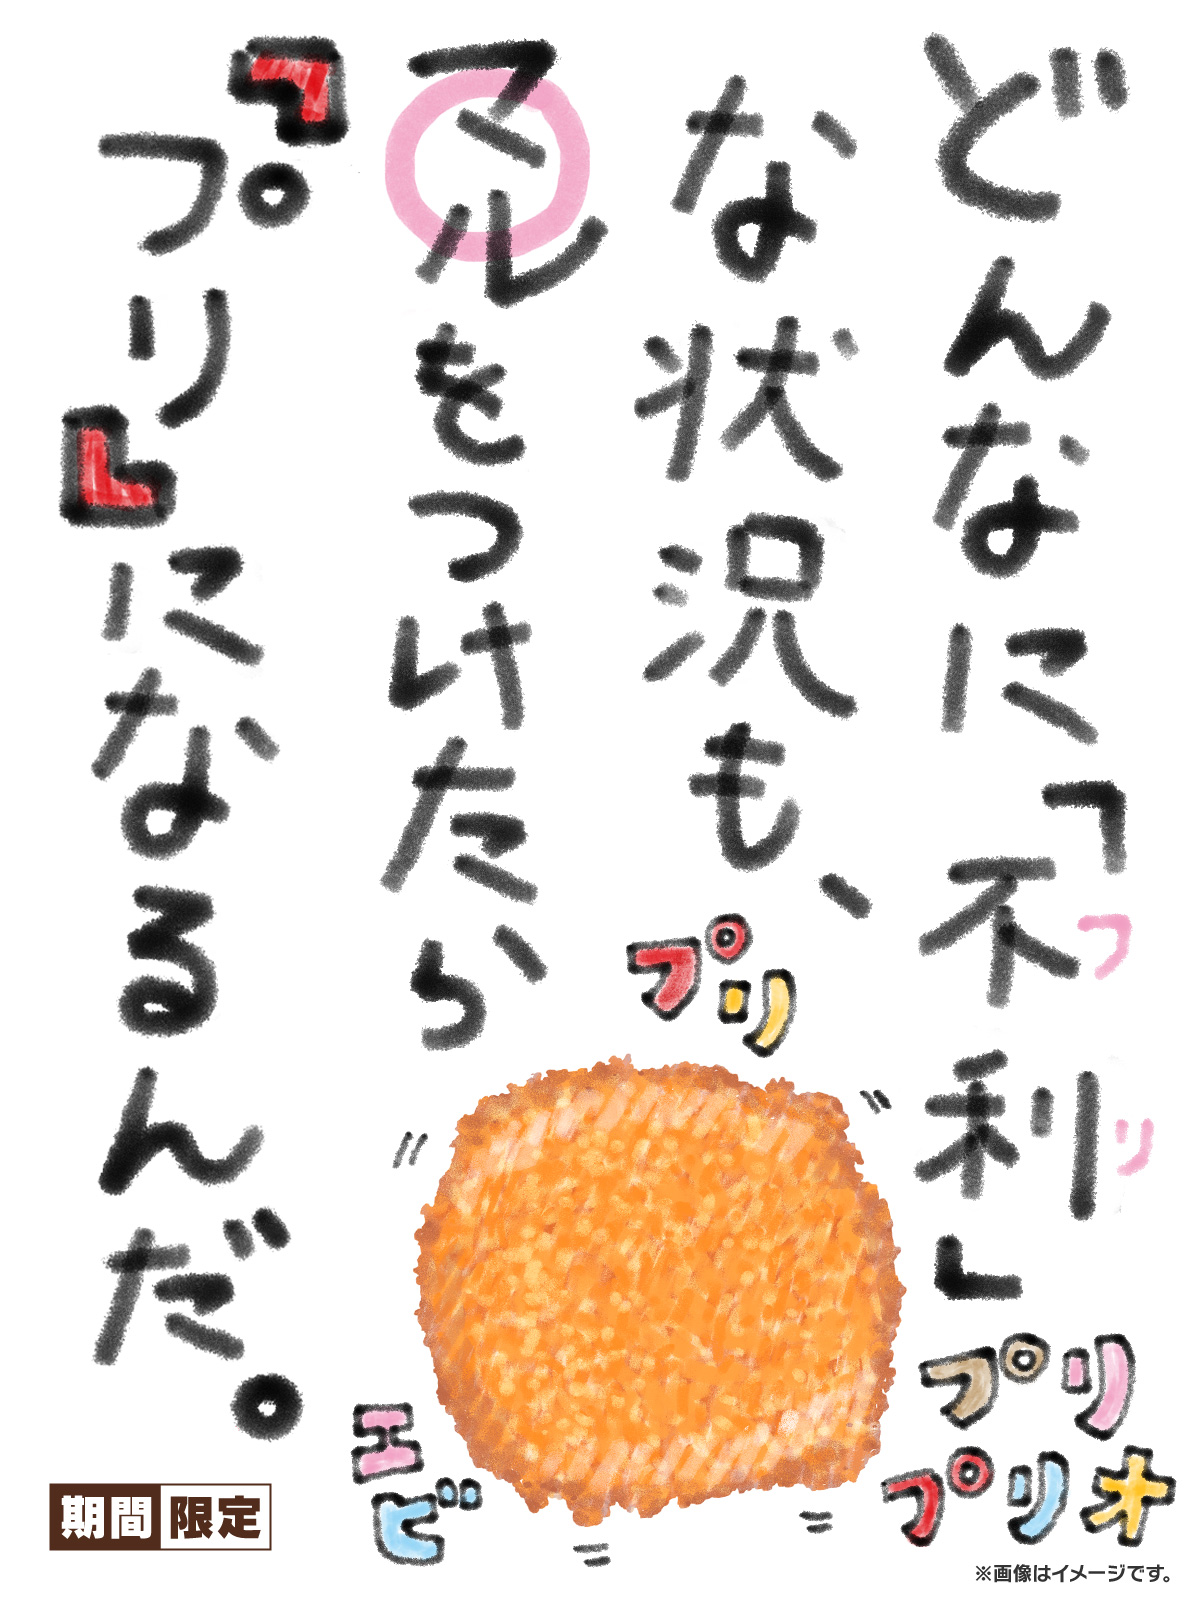 どんなに「不利」
フリ
な状況も、
マルをつけたら
『プリ』になるんだ。
プリ
エビ
プリ
プリオ
期間限定
※画像はイメージです。